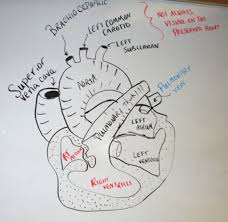 BRACHIOCEPHALIC
LEFT COMMON
CAROTID
LEFT
SUBCLAVIAN
NOT ALWAYS
VISIBLE ON THE
PRESERVED HEART
Superior
vena cava
AORTA
Pulmonary
vein
Pulmonary TRUNK
LEFT
ATRIUM
LEFT
VENTRICLE
RIGHT
VENTRICLE